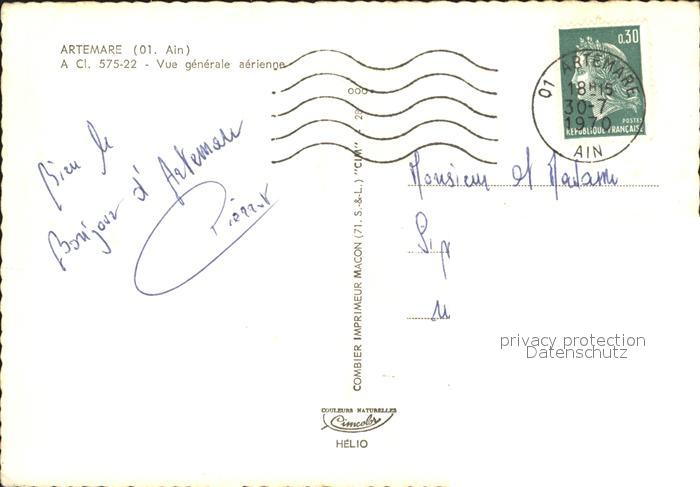 ARTEMARE (01. Ain)
A Cl. 575-22 - Vue générale aérienne
0,30
POSTES
REPUBLIQUE FRANÇAISE
01 ARTEMARE
18H15
30-7
1970
AIN
Bien le
Bonjour d'Artemare
Pierrot
COMBIER IMPRIMEUR MACON (71. S.-&-L.) "CIM"
Monsieur et Madame
privacy protection
Datenschutz
COULEURS NATURELLES
Cimcolor
HÉLIO